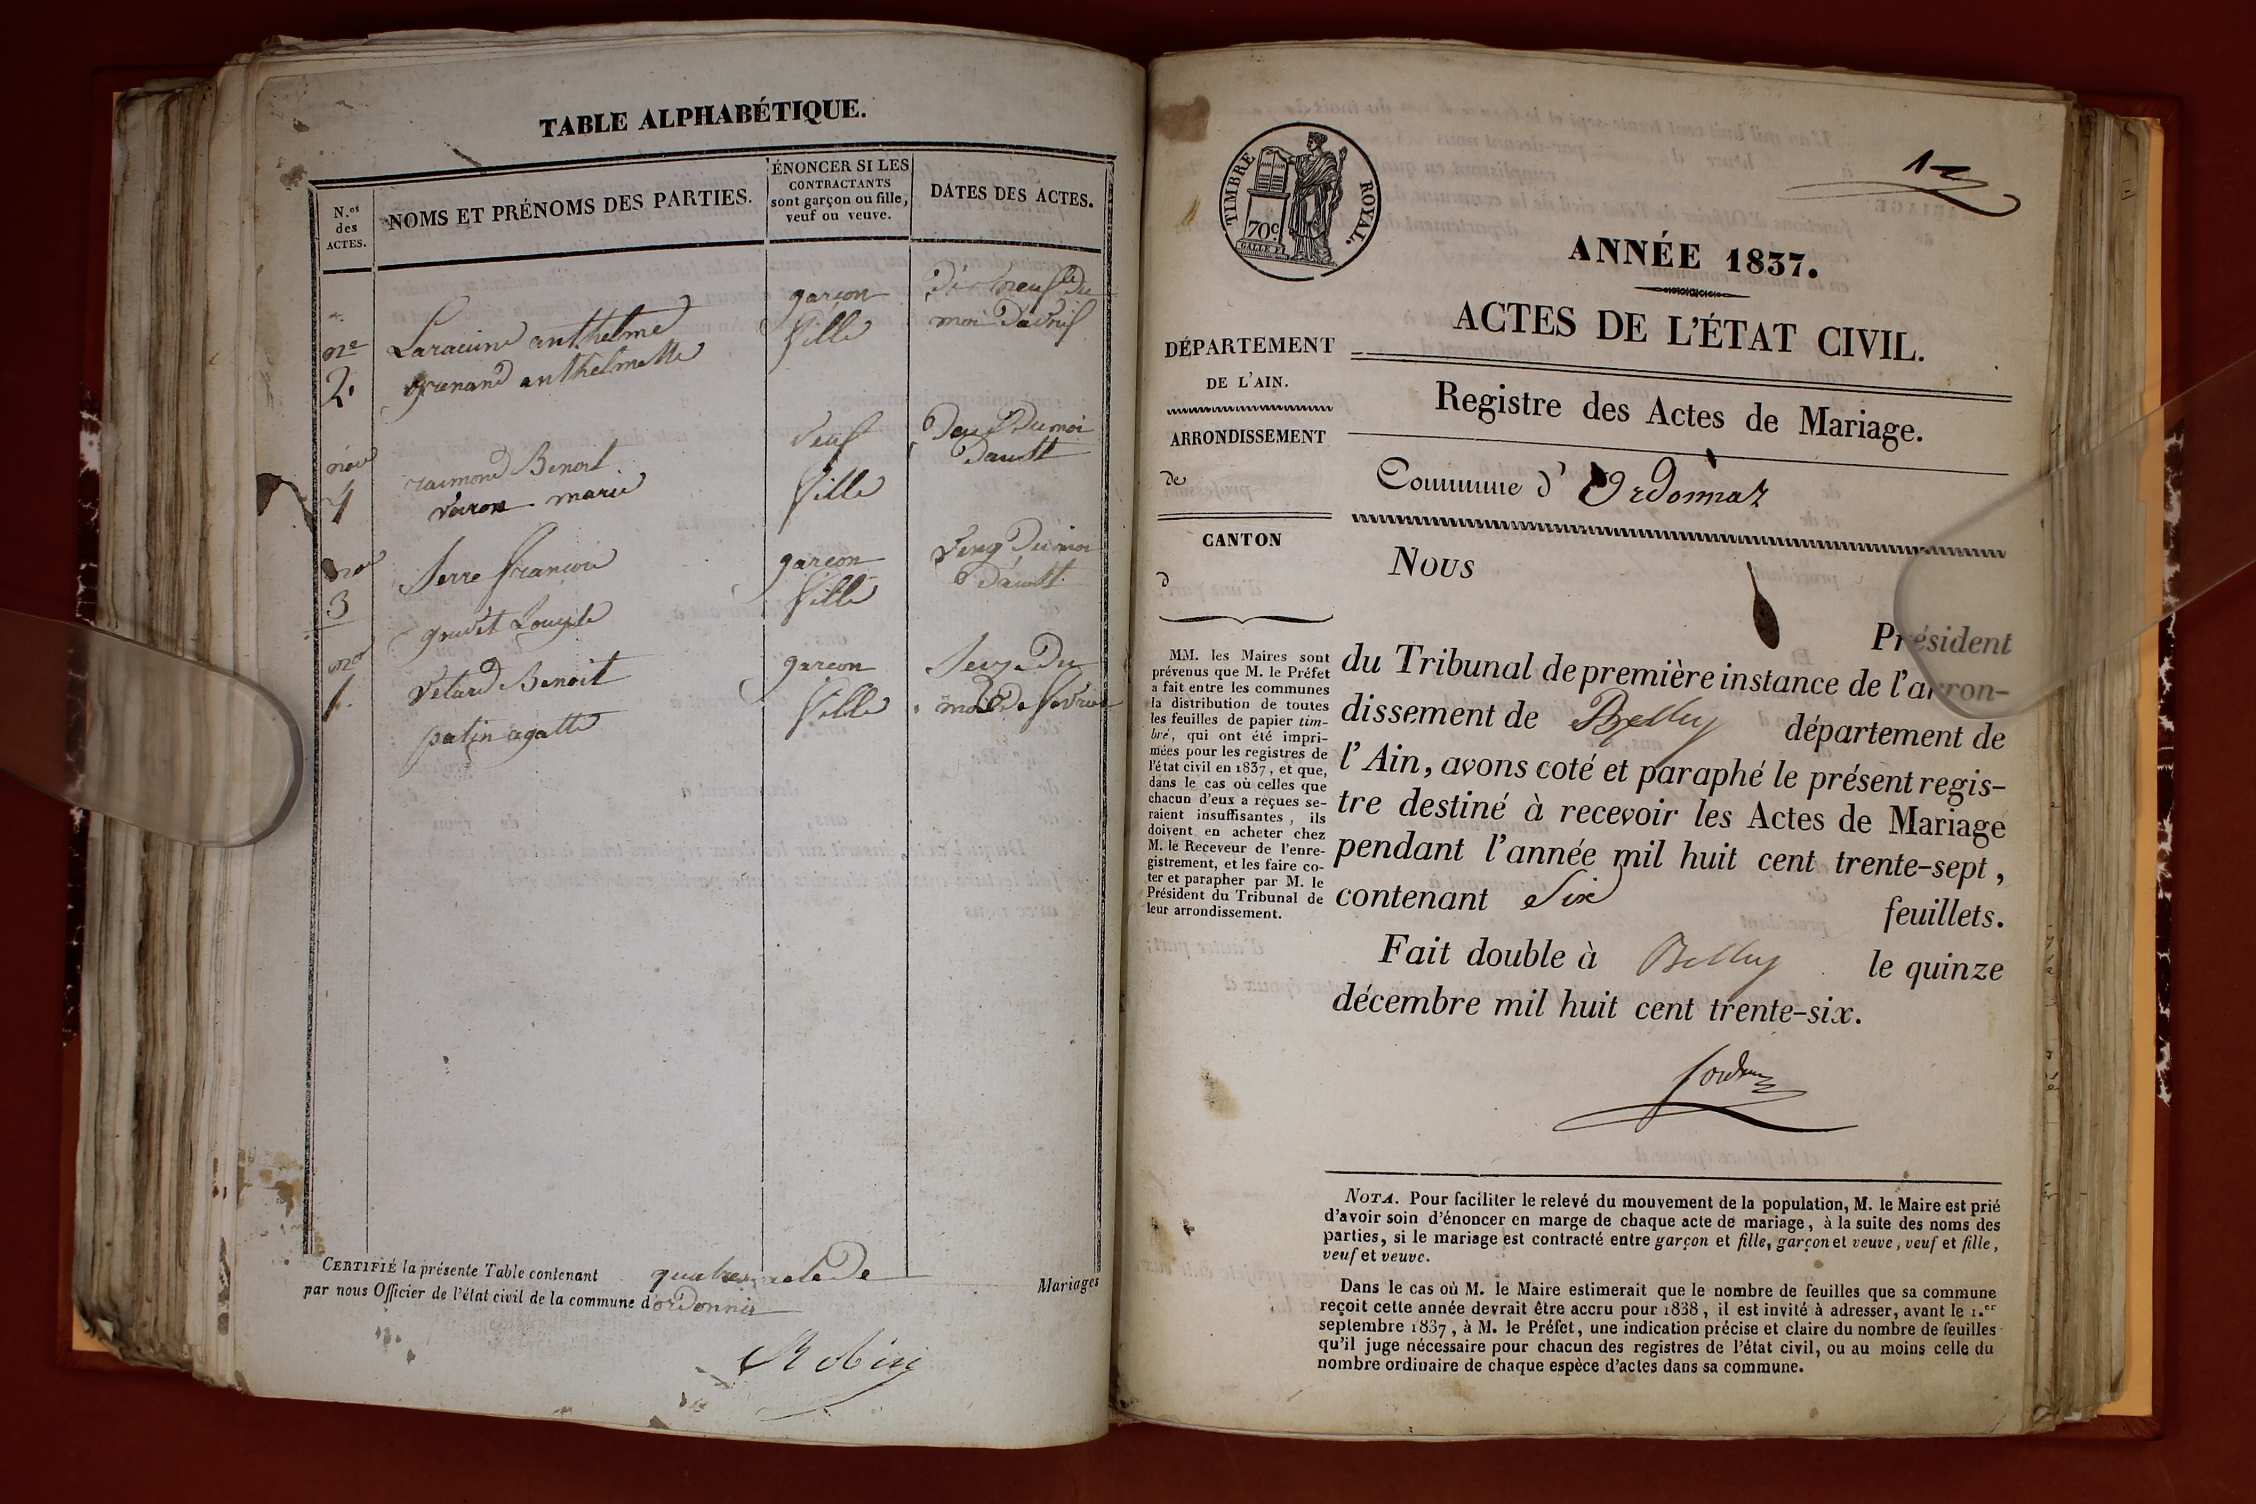 TABLE ALPHABÉTIQUE.
N.os des ACTES.
NOMS ET PRÉNOMS DES PARTIES.
ÉNONCER SI LES
CONTRACTANTS
sont garçon ou fille,
veuf ou veuve.
DATES DES ACTES.
garçon
Laracine anthelme
fille
moi Davril
2.
grenand anthelmette
veuf
Deux Dumoi
raimond Benoit
Daoutt
4
varon marie
fille
Serre francois
garçon
Veng Dumoi
3
fille
Daoutt
garcon
Seize Du
1.
vetard Benoit
fille
moi De fevrier
patin agatte
CERTIFIÉ la présente Table contenant quatre acte De Mariages
par nous Officier de l'état civil de la commune d'ordonnas
Robin
TIMBRE ROYAL.
70c.
1
ANNÉE 1837.
ACTES DE L'ÉTAT CIVIL.
DÉPARTEMENT
DE L'AIN.
ARRONDISSEMENT
de
CANTON
d
MM. les Maires sont
prévenus que M. le Préfet
a fait entre les communes
la distribution de toutes
les feuilles de papier tim-
bré, qui ont été impri-
mées pour les registres de
l'état civil en 1837, et que,
dans le cas où celles que
chacun d'eux a reçues se-
raient insuffisantes, ils
doivent en acheter chez
M. le Receveur de l'enre-
gistrement, et les faire co-
ter et parapher par M. le
Président du Tribunal de
leur arrondissement.
Registre des Actes de Mariage.
Commune d' Ordonnaz
Nous
Président
du Tribunal de première instance de l'arron-
dissement de Belley département de
l'Ain, avons coté et paraphé le présent regis-
tre destiné à recevoir les Actes de Mariage
pendant l'année mil huit cent trente-sept,
contenant Six feuillets.
Fait double à Belley le quinze
décembre mil huit cent trente-six.
NOTA. Pour faciliter le relevé du mouvement de la population, M. le Maire est prié
d'avoir soin d'énoncer en marge de chaque acte de mariage, à la suite des noms des
parties, si le mariage est contracté entre garçon et fille, garçon et veuve, veuf et fille,
veuf et veuve.
Dans le cas où M. le Maire estimerait que le nombre de feuilles que sa commune
reçoit cette année devrait être accru pour 1838, il est invité à adresser, avant le 1.er
septembre 1837, à M. le Préfet, une indication précise et claire du nombre de feuilles
qu'il juge nécessaire pour chacun des registres de l'état civil, ou au moins celle du
nombre ordinaire de chaque espèce d'actes dans sa commune.